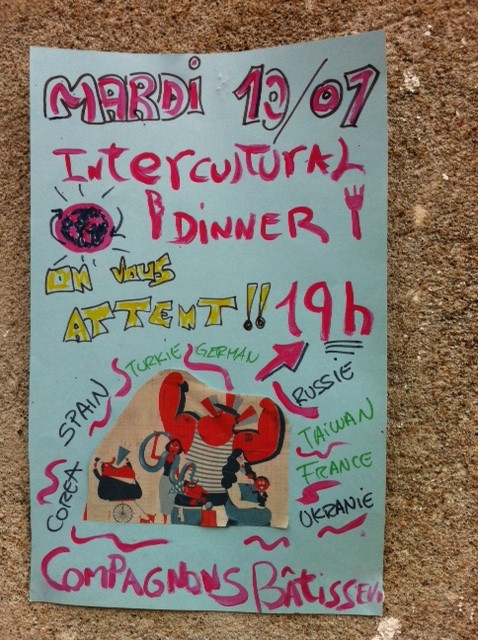 MARDi 10/07
InterculturAL
DINNER
ON vous
ATTENT!! 19h
TURKIE GERMAN
SPAIN RUSSIE
TAiWAN
FRANCE
COREA UKRANIE
COMPAGNONS BÂtiSSEU